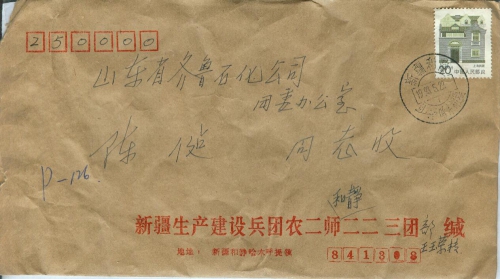 250000
20
中国人民邮政
山东省齐鲁石化公司
团委办公室
陈 同志收
P-126
和静
新疆生产建设兵团农二师二二三团部 缄
地址: 新疆和静哈木呼提镇
841308